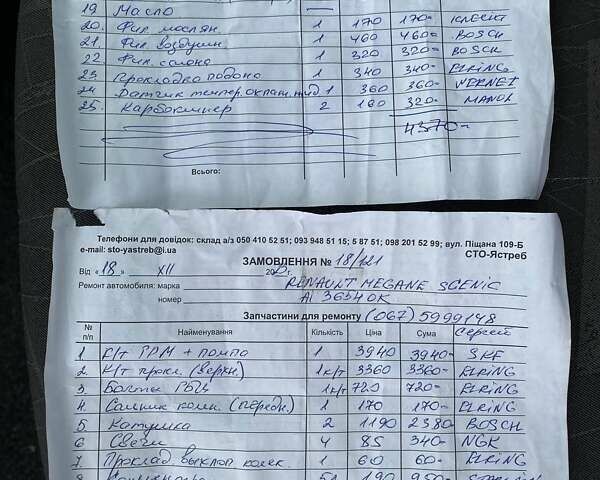 19 Масло —
20. Фил. маслян. 1 170 170=
21. Фил. воздушн. 1 460 460= BOSCH
22 Фил. салона 1 320 320= BOSCH
23 Прокладка поддона 1 340 340= ELRING
24 Датчик темпер. охлаж. жид 1 360 360= WERNET
25. Карбоклинер 2 160 320= MANOL
4370=
Всього:
Телефони для довідок: склад а/з 050 410 52 51; 093 948 51 15; 5 87 51; 098 201 52 99; вул. Піщана 109-Б
e-mail: sto-yastreb@i.ua СТО-Ястреб
ЗАМОВЛЕННЯ № 18/121
Від «18» XII
Ремонт автомобиля: марка RENAULT MEGANE SCENIC
номер AI 3634 OK
Запчастини для ремонту (067) 5999148
№ п/п Найменування Кількість Ціна Сума Сергей
1 К/т ГРМ + помпа 1 3940 3940= SKF
2 К/т прокл. (верхн.) 1к/т 3360 3360= ELRING
3. Болты ГБЦ 1к/т 720 720= ELRING
4 Сальник колен. (передн.) 1 170 170= ELRING
5 Катушка 2 1190 2380= BOSCH
6 Свечи 4 85 340= NGK
7 Проклад. выхлоп. колек. 1 60 60= ELRING
8 5л 190